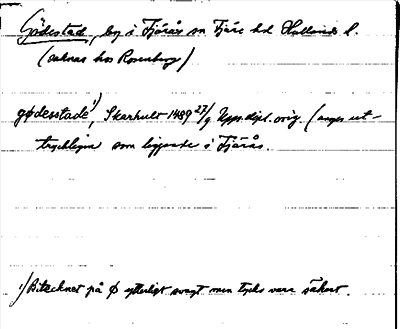 Gödestad, by i Fjärås sn Fjäre hd Hallands l.
(saknas hos Rosenberg)
gødesstade¹), Skarhult 1489 27/9 Uppsdipl. orig. (anges ut-
tryckligen som liggande i Fjärås.
¹) Bitecknet på ø ytterligt svagt men tycks vara säkert.